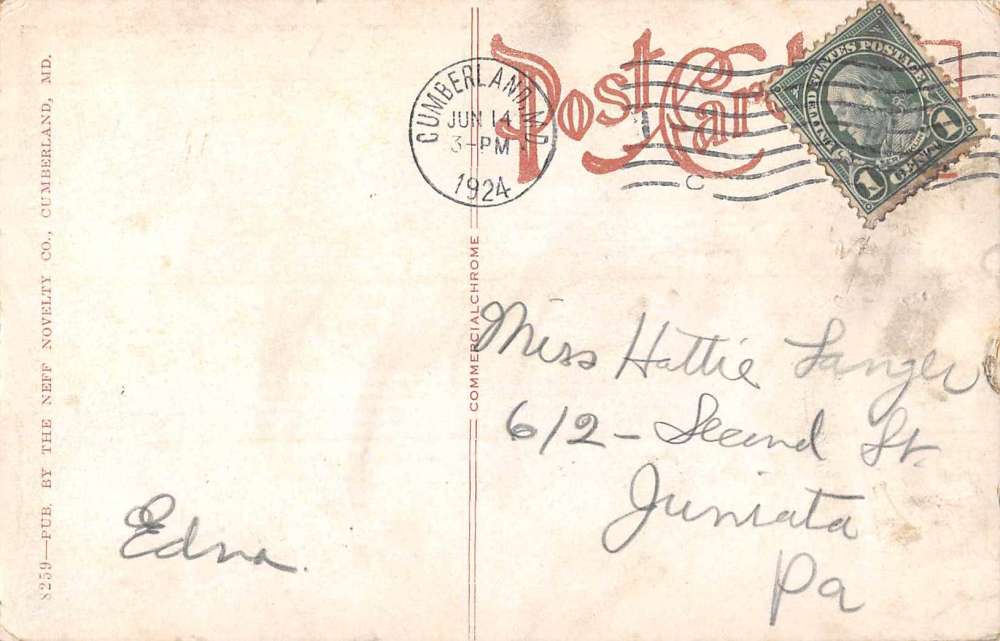 Post Card
CUMBERLAND, MD
JUN 14
3-PM
1924
UNITED STATES POSTAGE
1 CENT 1
8259—PUB. BY THE NEFF NOVELTY CO., CUMBERLAND, MD.
COMMERCIALCHROME
Edna.
Miss Hattie Langer
612 - Second St.
Juniata
Pa